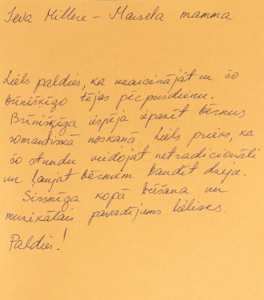 Ieva Millere - Marsela mamma
Liels paldies, ka neaicinājāt uz šo
brīnišķīgo tējas pēcpusdienu.
Brīnišķīga iespēja iepazīt bērnus
romantiskā noskaņā. Liels prieks, ka
šo stundu veidojat netradicionāli
un ļaujat bērniem baudīt dzeju.
Sirsnīga kopā būšana un
muzikālais pavadījums lielisks.
Paldies!